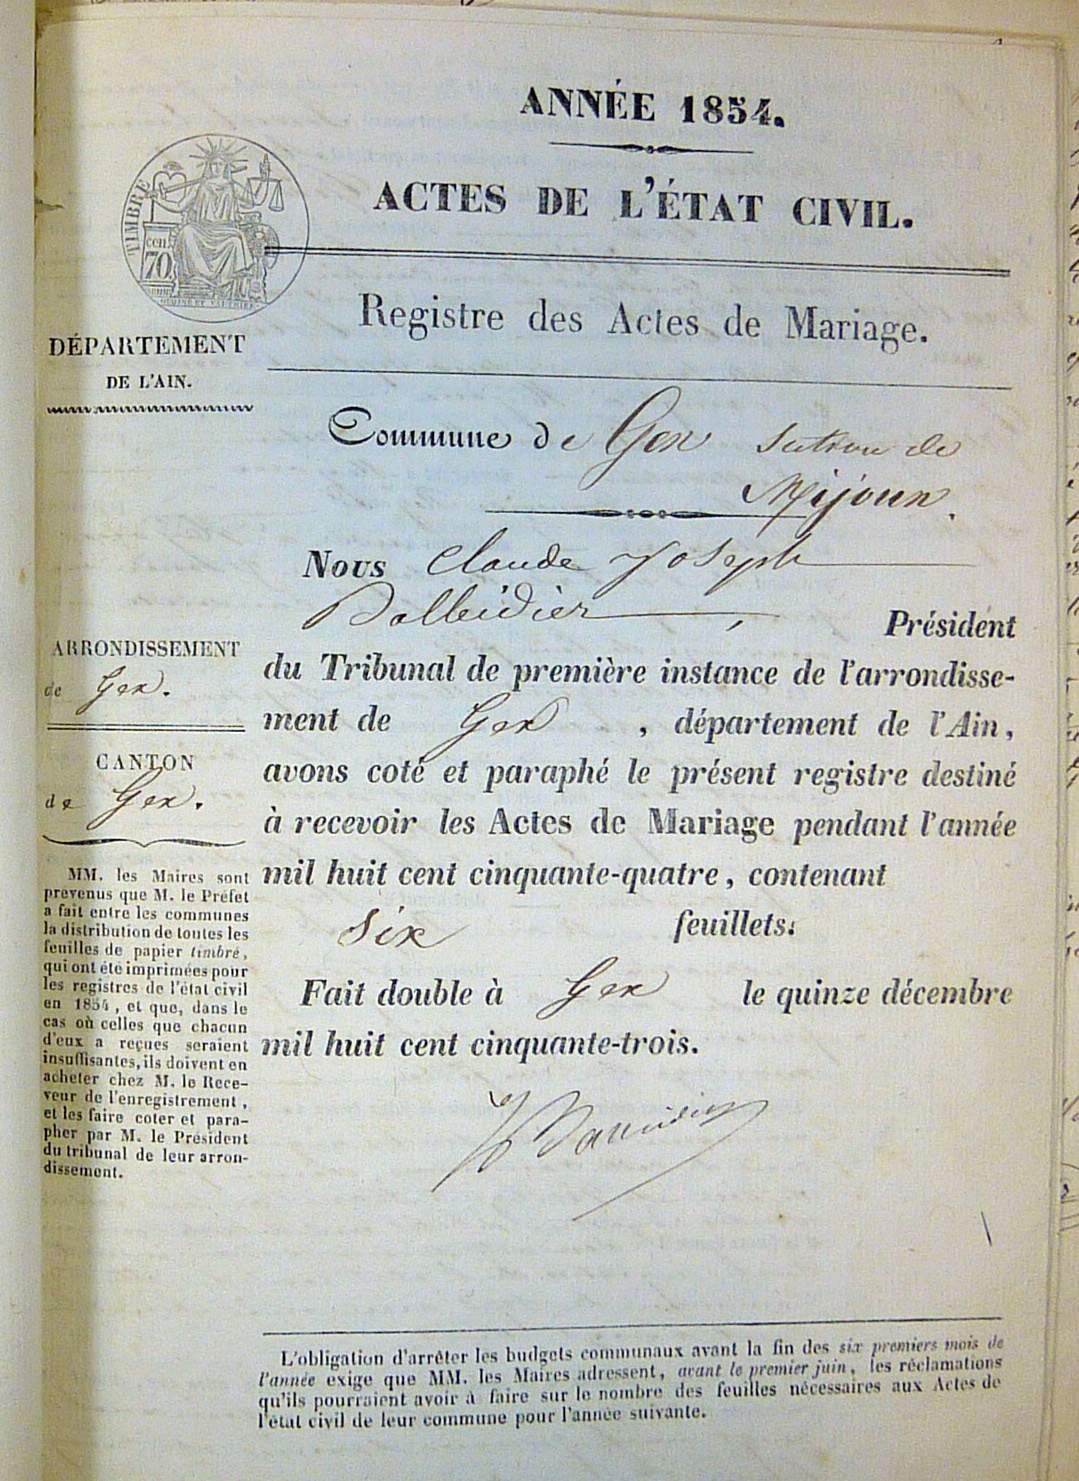 ANNÉE 1854.
ACTES DE L'ÉTAT CIVIL.
TIMBRE
cen.
70.
Registre des Actes de Mariage.
DÉPARTEMENT
DE L'AIN.
Commune de Gex Section de
Mijoux.
Nous Claude Joseph
Balleidier, Président
du Tribunal de première instance de l'arrondisse-
ment de Gex, département de l'Ain,
avons coté et paraphé le présent registre destiné
à recevoir les Actes de Mariage pendant l'année
mil huit cent cinquante-quatre, contenant
Six feuillets.
Fait double à Gex le quinze décembre
mil huit cent cinquante-trois.
ARRONDISSEMENT
de Gex.
CANTON
de Gex.
MM. les Maires sont
prévenus que M. le Préfet
a fait entre les communes
la distribution de toutes les
feuilles de papier timbré,
qui ont été imprimées pour
les registres de l'état civil
en 1854, et que, dans le
cas où celles que chacun
d'eux a reçues seraient
insuffisantes, ils doivent en
acheter chez M. le Rece-
veur de l'enregistrement,
et les faire coter et para-
pher par M. le Président
du tribunal de leur arron-
dissement.
L'obligation d'arrêter les budgets communaux avant la fin des six premiers mois de
l'année exige que MM. les Maires adressent, avant le premier juin, les réclamations
qu'ils pourraient avoir à faire sur le nombre des feuilles nécessaires aux Actes de
l'état civil de leur commune pour l'année suivante.